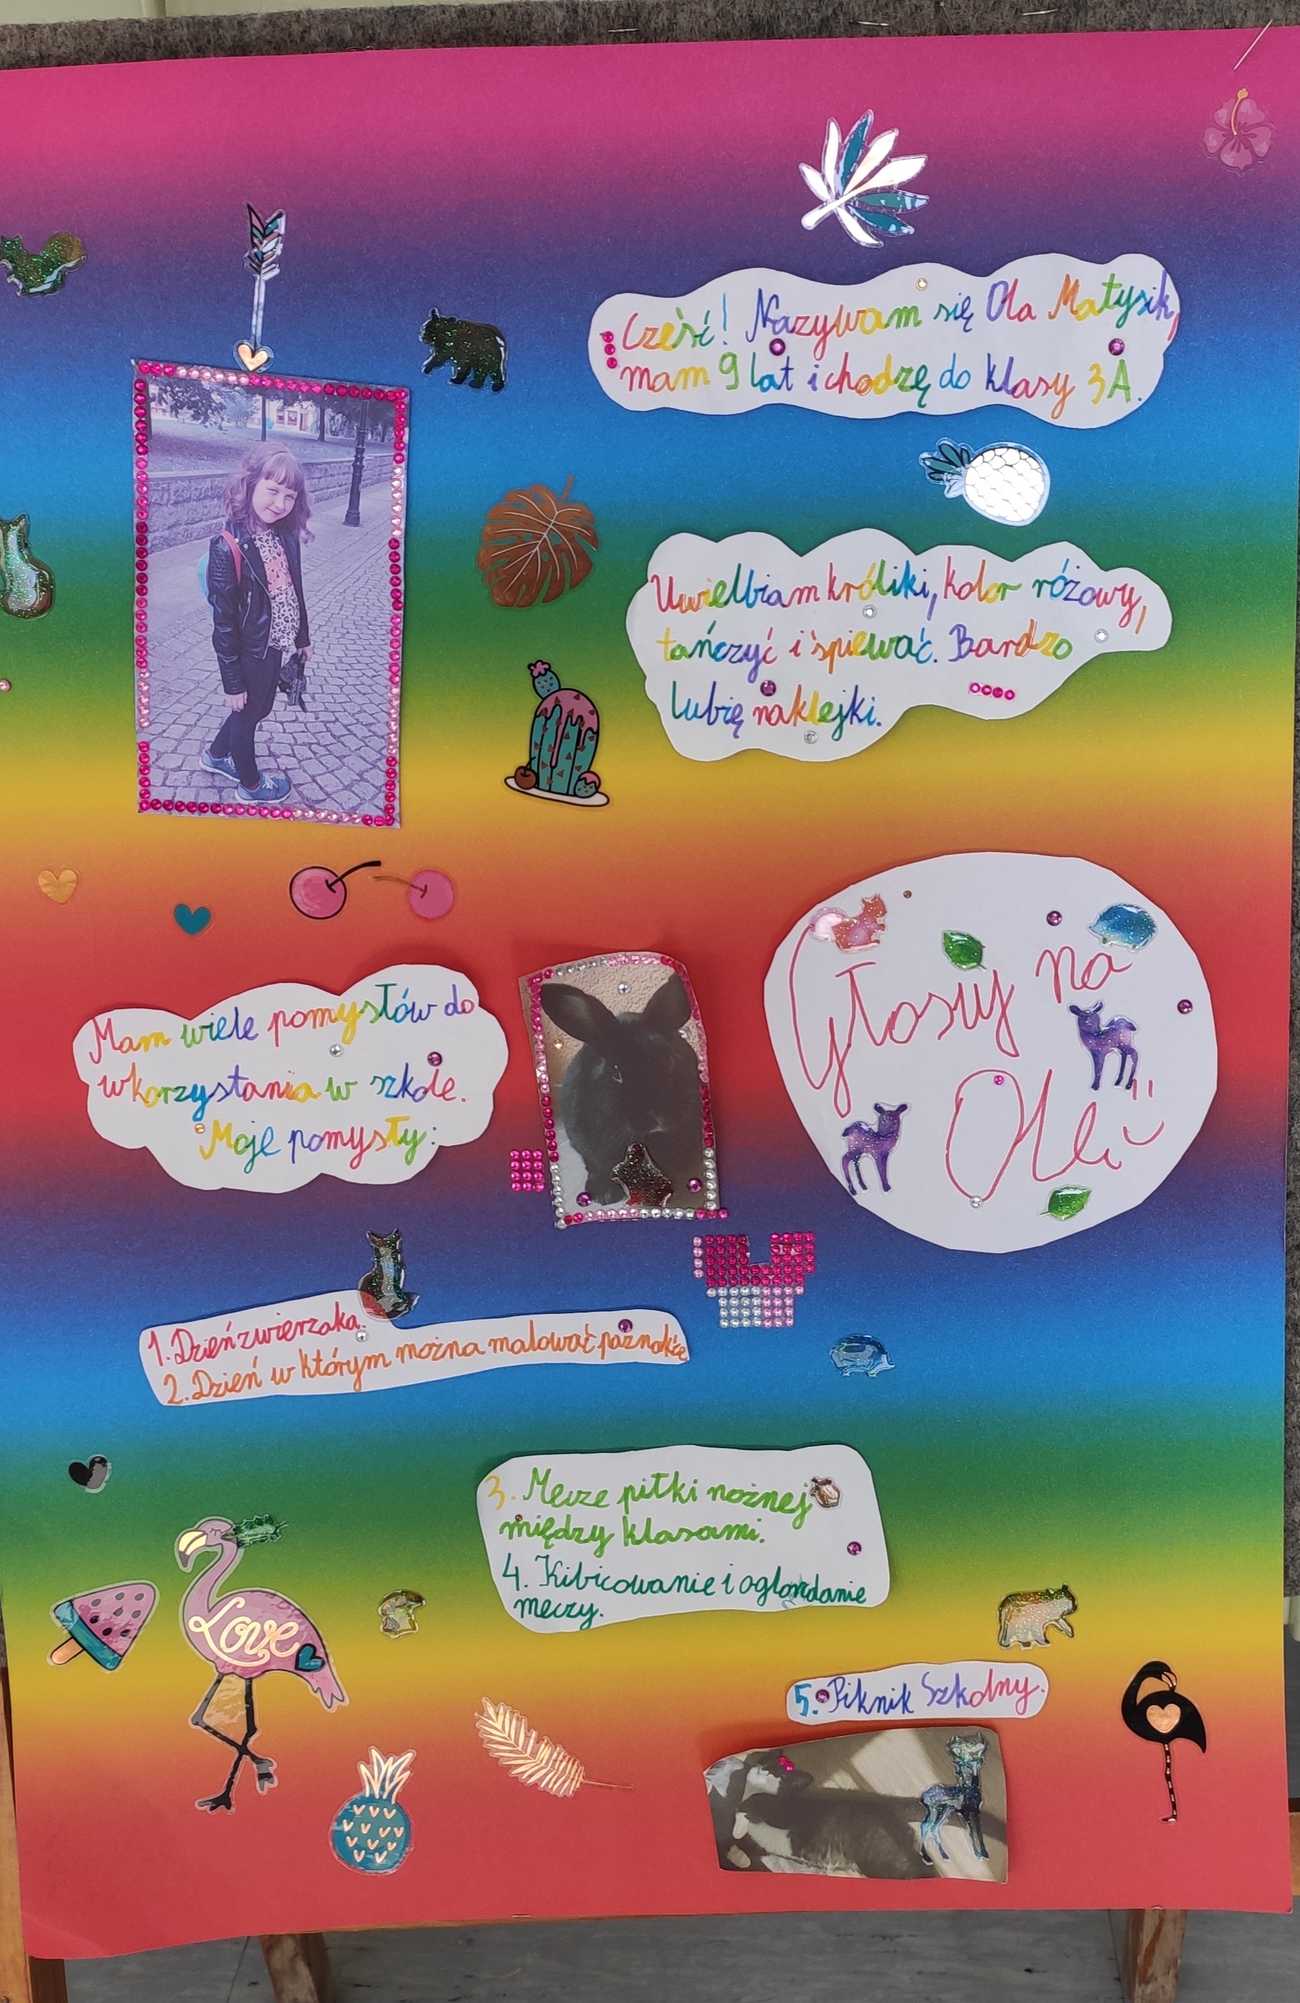 Cześć! Nazywam się Ola Matysik,
mam 9 lat i chodzę do klasy 3A.
Uwielbiam króliki, kolor różowy,
tańczyć i śpiewać. Bardzo
lubię naklejki.
Głosuj na
Olę
Mam wiele pomysłów do
wkorzystania w szkole.
Moje pomysły:
1. Dzień zwierzaka.
2. Dzień w którym można malować paznokcie
3. Mecze piłki nożnej
między klasami.
4. Kibicowanie i oglondanie
meczy.
Love
5. Piknik Szkolny.